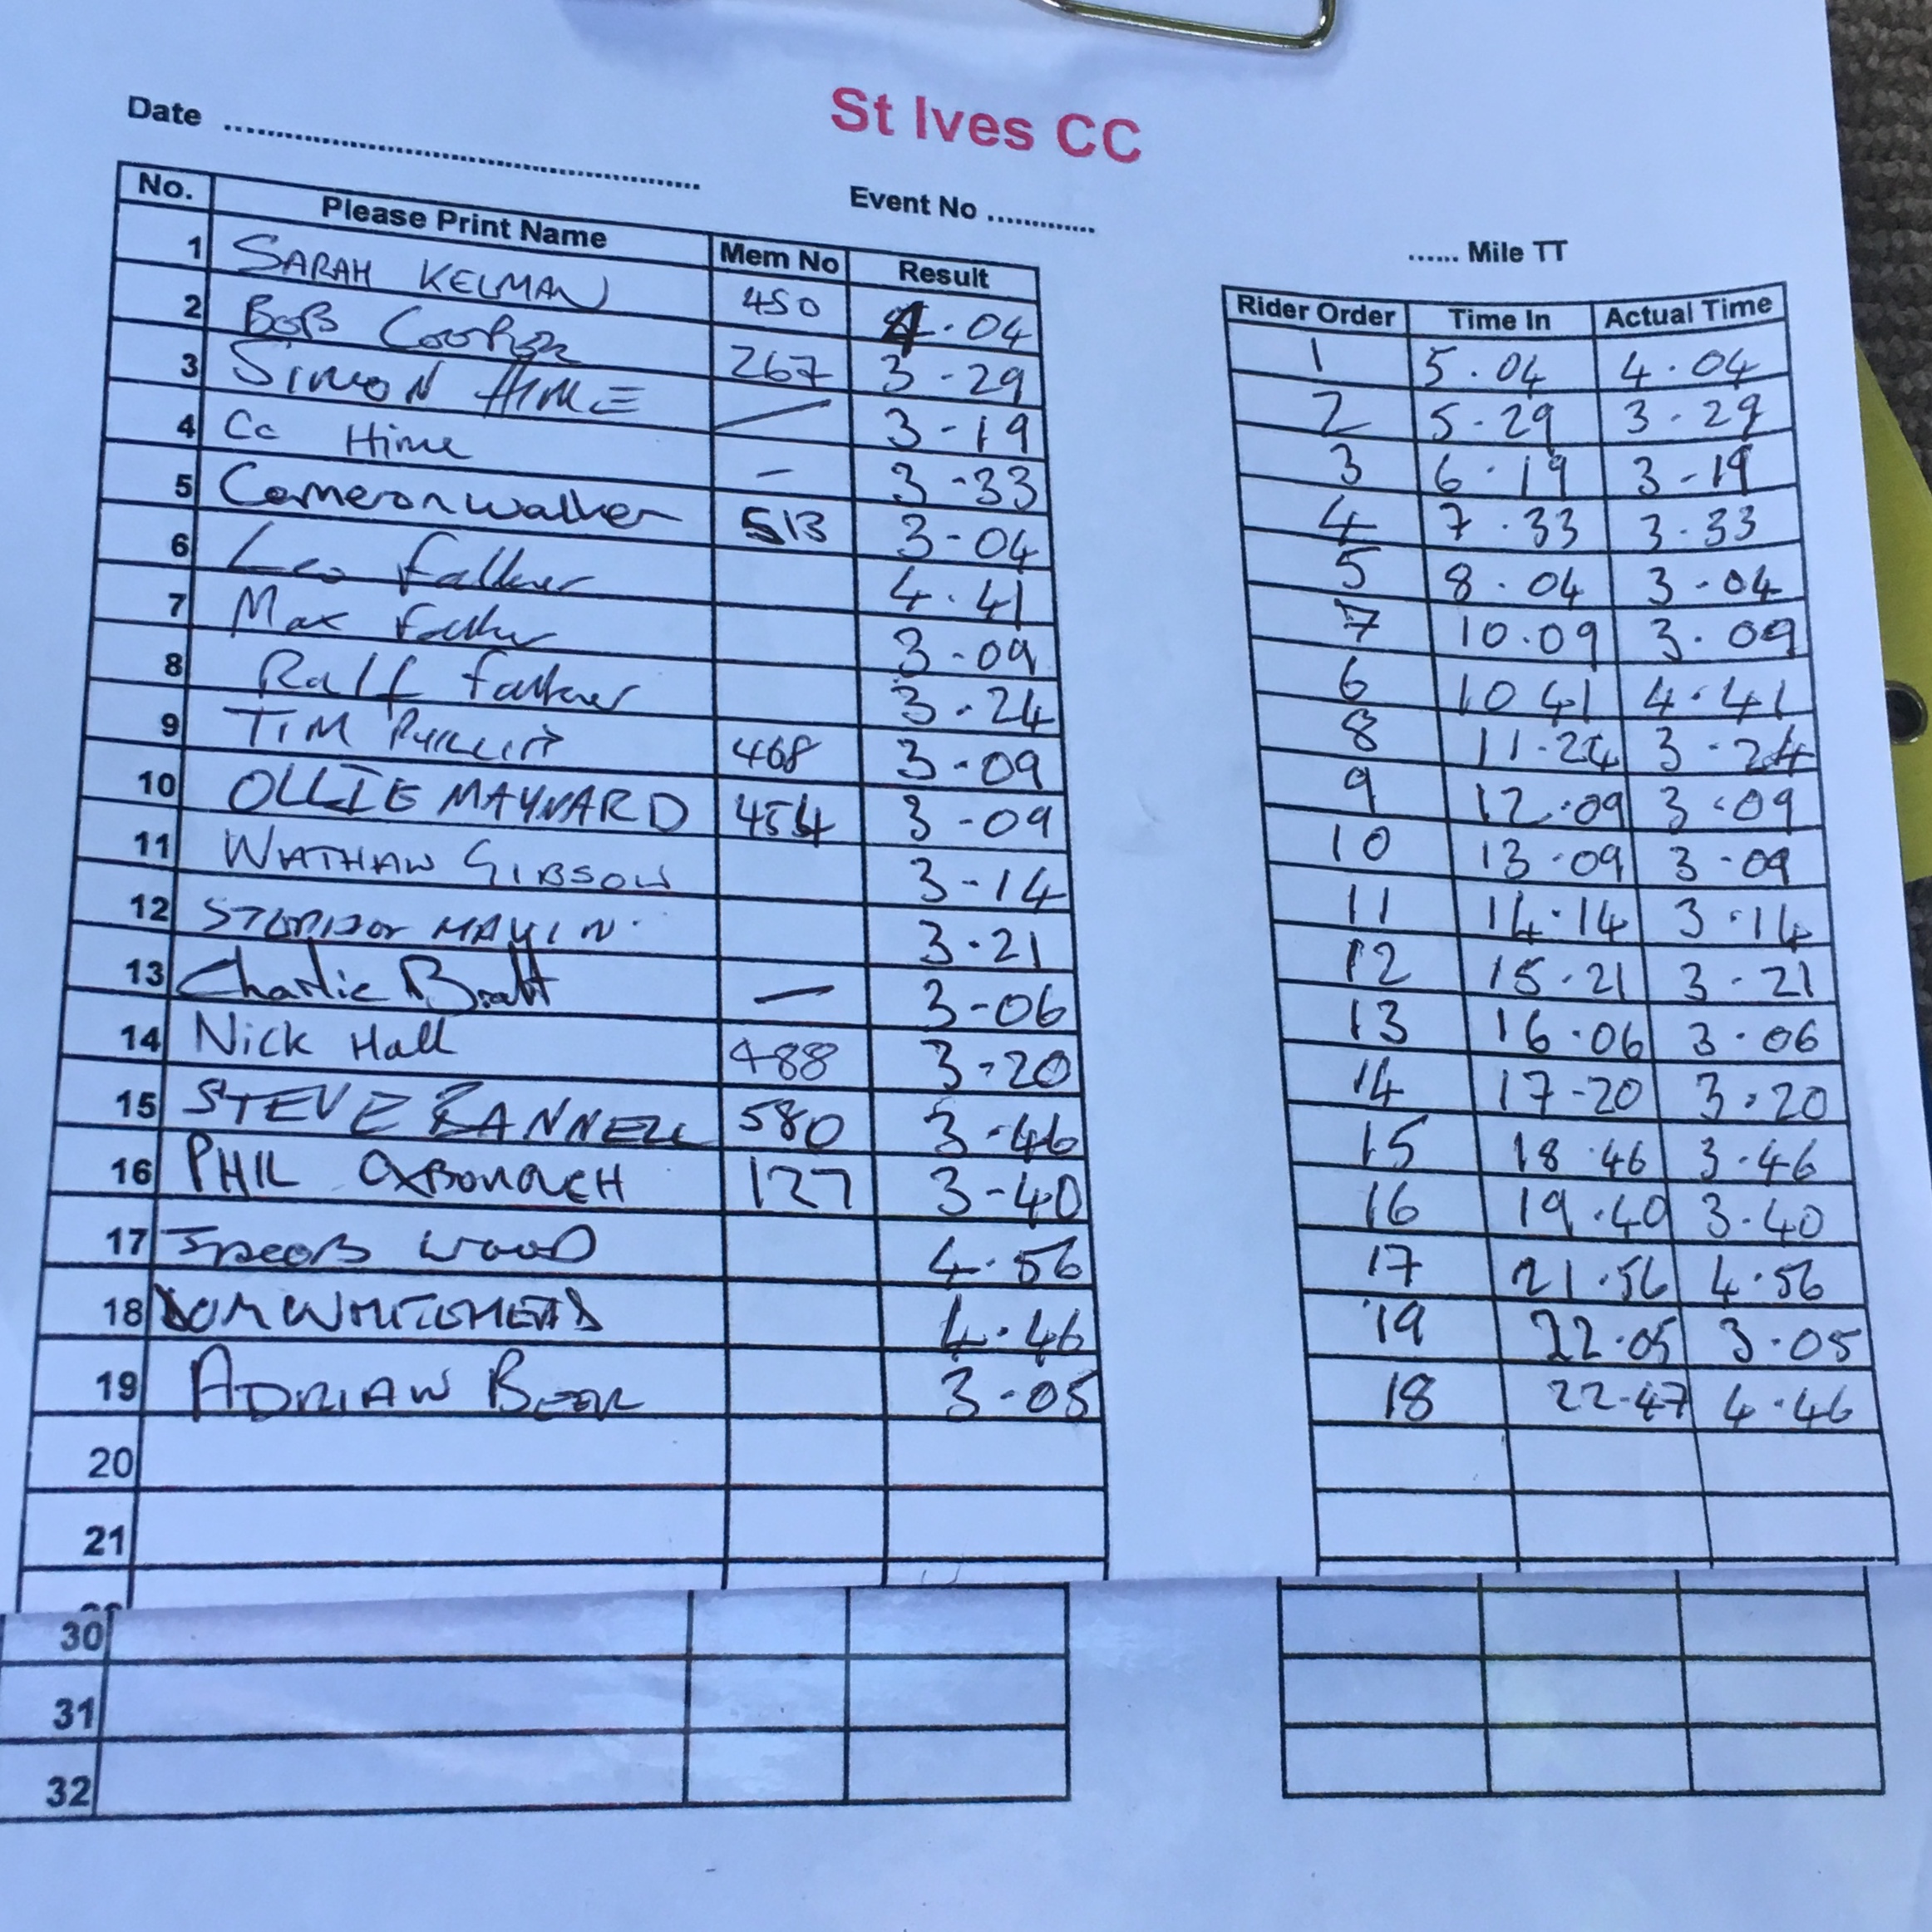 St Ives CC
Date ........................ Event No ............ ...... Mile TT
No. Please Print Name Mem No Result
1 SARAH KELMAN 450 4.04
2 BOB 267 3-29
3 SIMON HIME — 3-19
4 Cc Hime - 3-33
5 Cameron walker 513 3-04
6 Leo Falkner 4.41
7 Max 3-09
8 Ralf falkner 3.24
9 TIM 468 3-09
10 OLLIE MAYNARD 454 3-09
11 GIBSON 3-14
12 3.21
13 Charlie — 3-06
14 Nick Hall 488 3-20
15 STEVE 580 3-46
16 PHIL 127 3-40
17 JACOB WOOD 4.56
18 WHITEHEAD 4.46
19 ADRIAN BEER 3-05
20
21
30
31
32
Rider Order Time In Actual Time
1 5.04 4.04
2 5-29 3-29
3 6.19 3-19
4 7.33 3.33
5 8.04 3-04
7 10.09 3.09
6 10 41 4.41
8 11-24 3-24
9 12.09 3.09
10 13.09 3-09
11 14.14 3.14
12 15-21 3-21
13 16.06 3.06
14 17-20 3.20
15 18.46 3.46
16 19.40 3.40
17 21.56 4.56
19 22.05 3.05
18 22-47 4.46